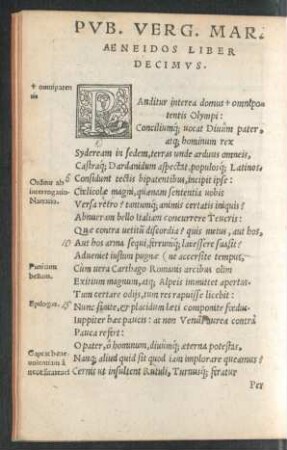 PVB. VERG. MAR.
AENEIDOS LIBER
DECIMVS.
+ omniparentis
PAnditur interea domus + omnipotentis Olympi:
Conciliumq; uocat Diuûm pater,
atq; hominum rex
Sydeream in sedem, terras unde arduus omneis,
Castraq; Dardanidum aspectat, populosq; Latinos.
Orditur ab interrogatio
5 Considunt tectis bipatentibus, incipit ipse:
Cœlicolæ magni, quænam sententia uobis
Versa retro? tantumq; animis certatis iniquis?
Abnueram bello Italiam concurrere Teucris:
Quæ contra uetitū discordia? quis metus, aut hos,
10 Aut hos arma sequi, ferrumq; lacessere suasit?
Adueniet iustum pugnæ (ne accersite) tempus,
Punicum bellum.
Cum fera Carthago Romanis arcibus olim
Exitium magnum, atq; Alpeis immittet apertas:
Tum certare odijs, tum res rapuisse licebit:
Epilogus.
15 Nunc sinite, et placidum læti componite fœdus.
Iuppiter hæc paucis: at non Venus aurea contrà
Pauca refert:
O pater, ô hominum, diuûmq; æterna potestas,
Captat beneuolentiam à necessitate
Nanq; aliud quid sit quod iam implorare queamus?
Cernis ut insultent Rutuli, Turnusq; feratur
Per